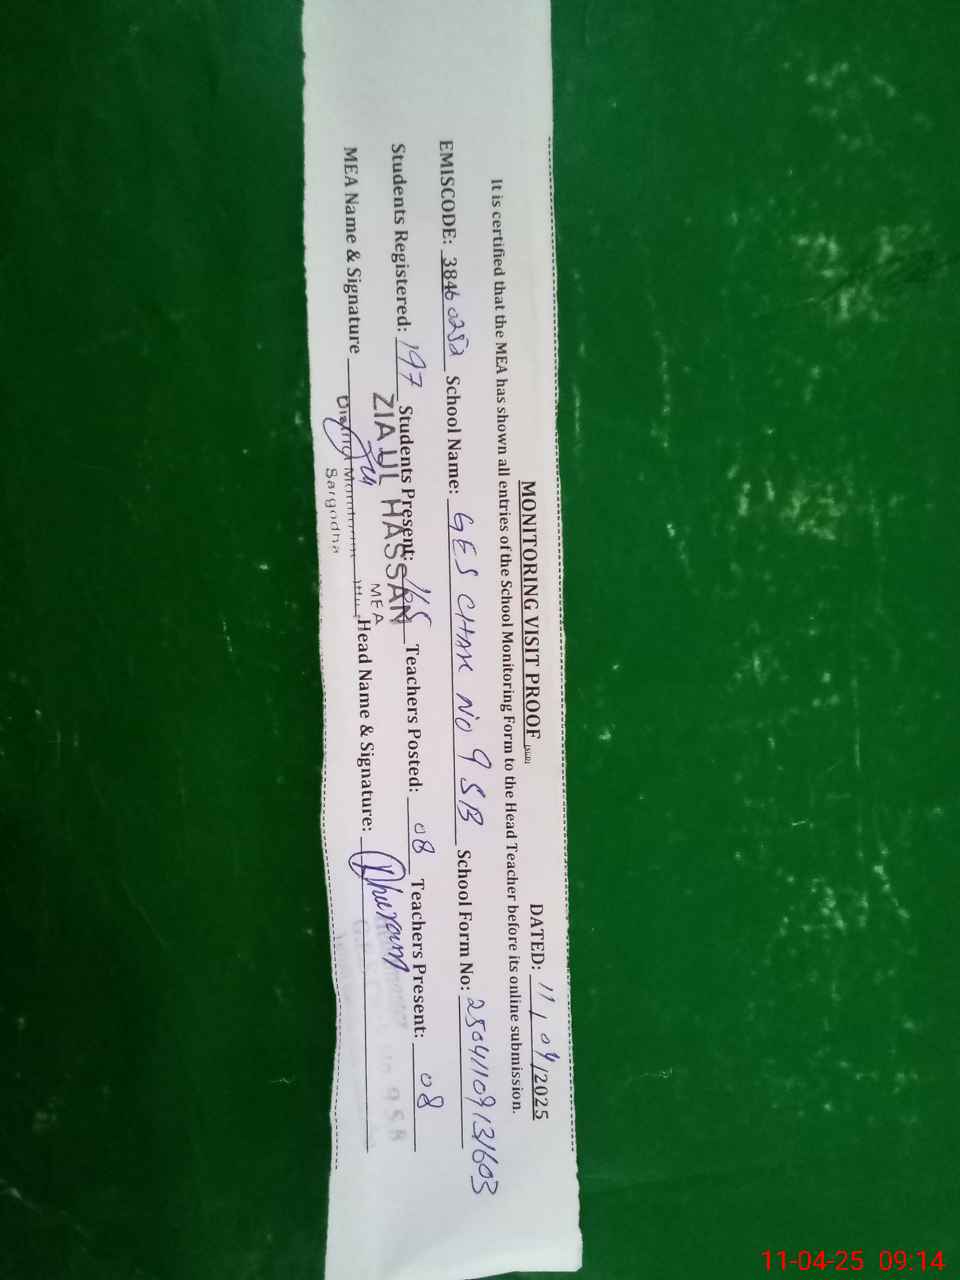 MONITORING VISIT PROOF
DATED: 11/04/2025
It is certified that the MEA has shown all entries of the School Monitoring Form to the Head Teacher before its online submission.
EMISCODE: 38460252 School Name: GES CHAK NO 9 SB School Form No: 25041109131603
Students Registered: 197 Students Present: 165 Teachers Posted: 08 Teachers Present: 08
ZIA UL HASSAN
MEA
MEA Name & Signature Head Name & Signature: Khuram
District Monitoring
Sargodha
9 SB
11-04-25 09:14